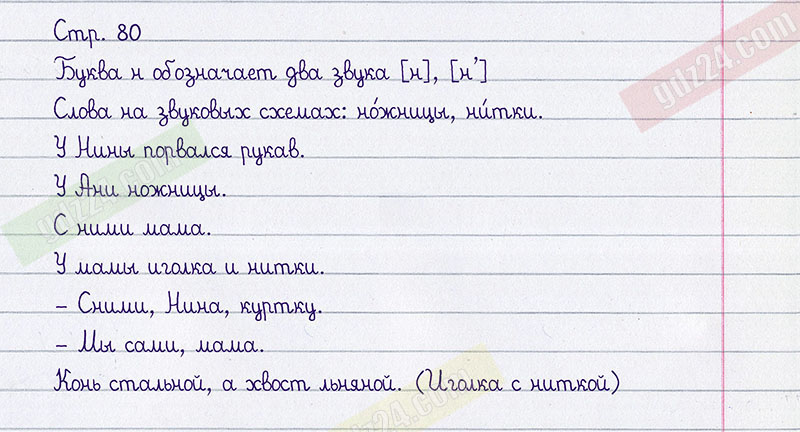 Стр. 80
Буква н обозначает два звука [н], [н’]
Слова на звуковых схемах: но́жницы, ни́тки.
У Нины порвался рукав.
У Ани ножницы.
С ними мама.
У мамы иголка и нитки.
– Сними, Нина, куртку.
– Мы сами, мама.
Конь стальной, а хвост льняной. (Иголка с ниткой)
gdz24.com
gdz24.com
gdz24.com